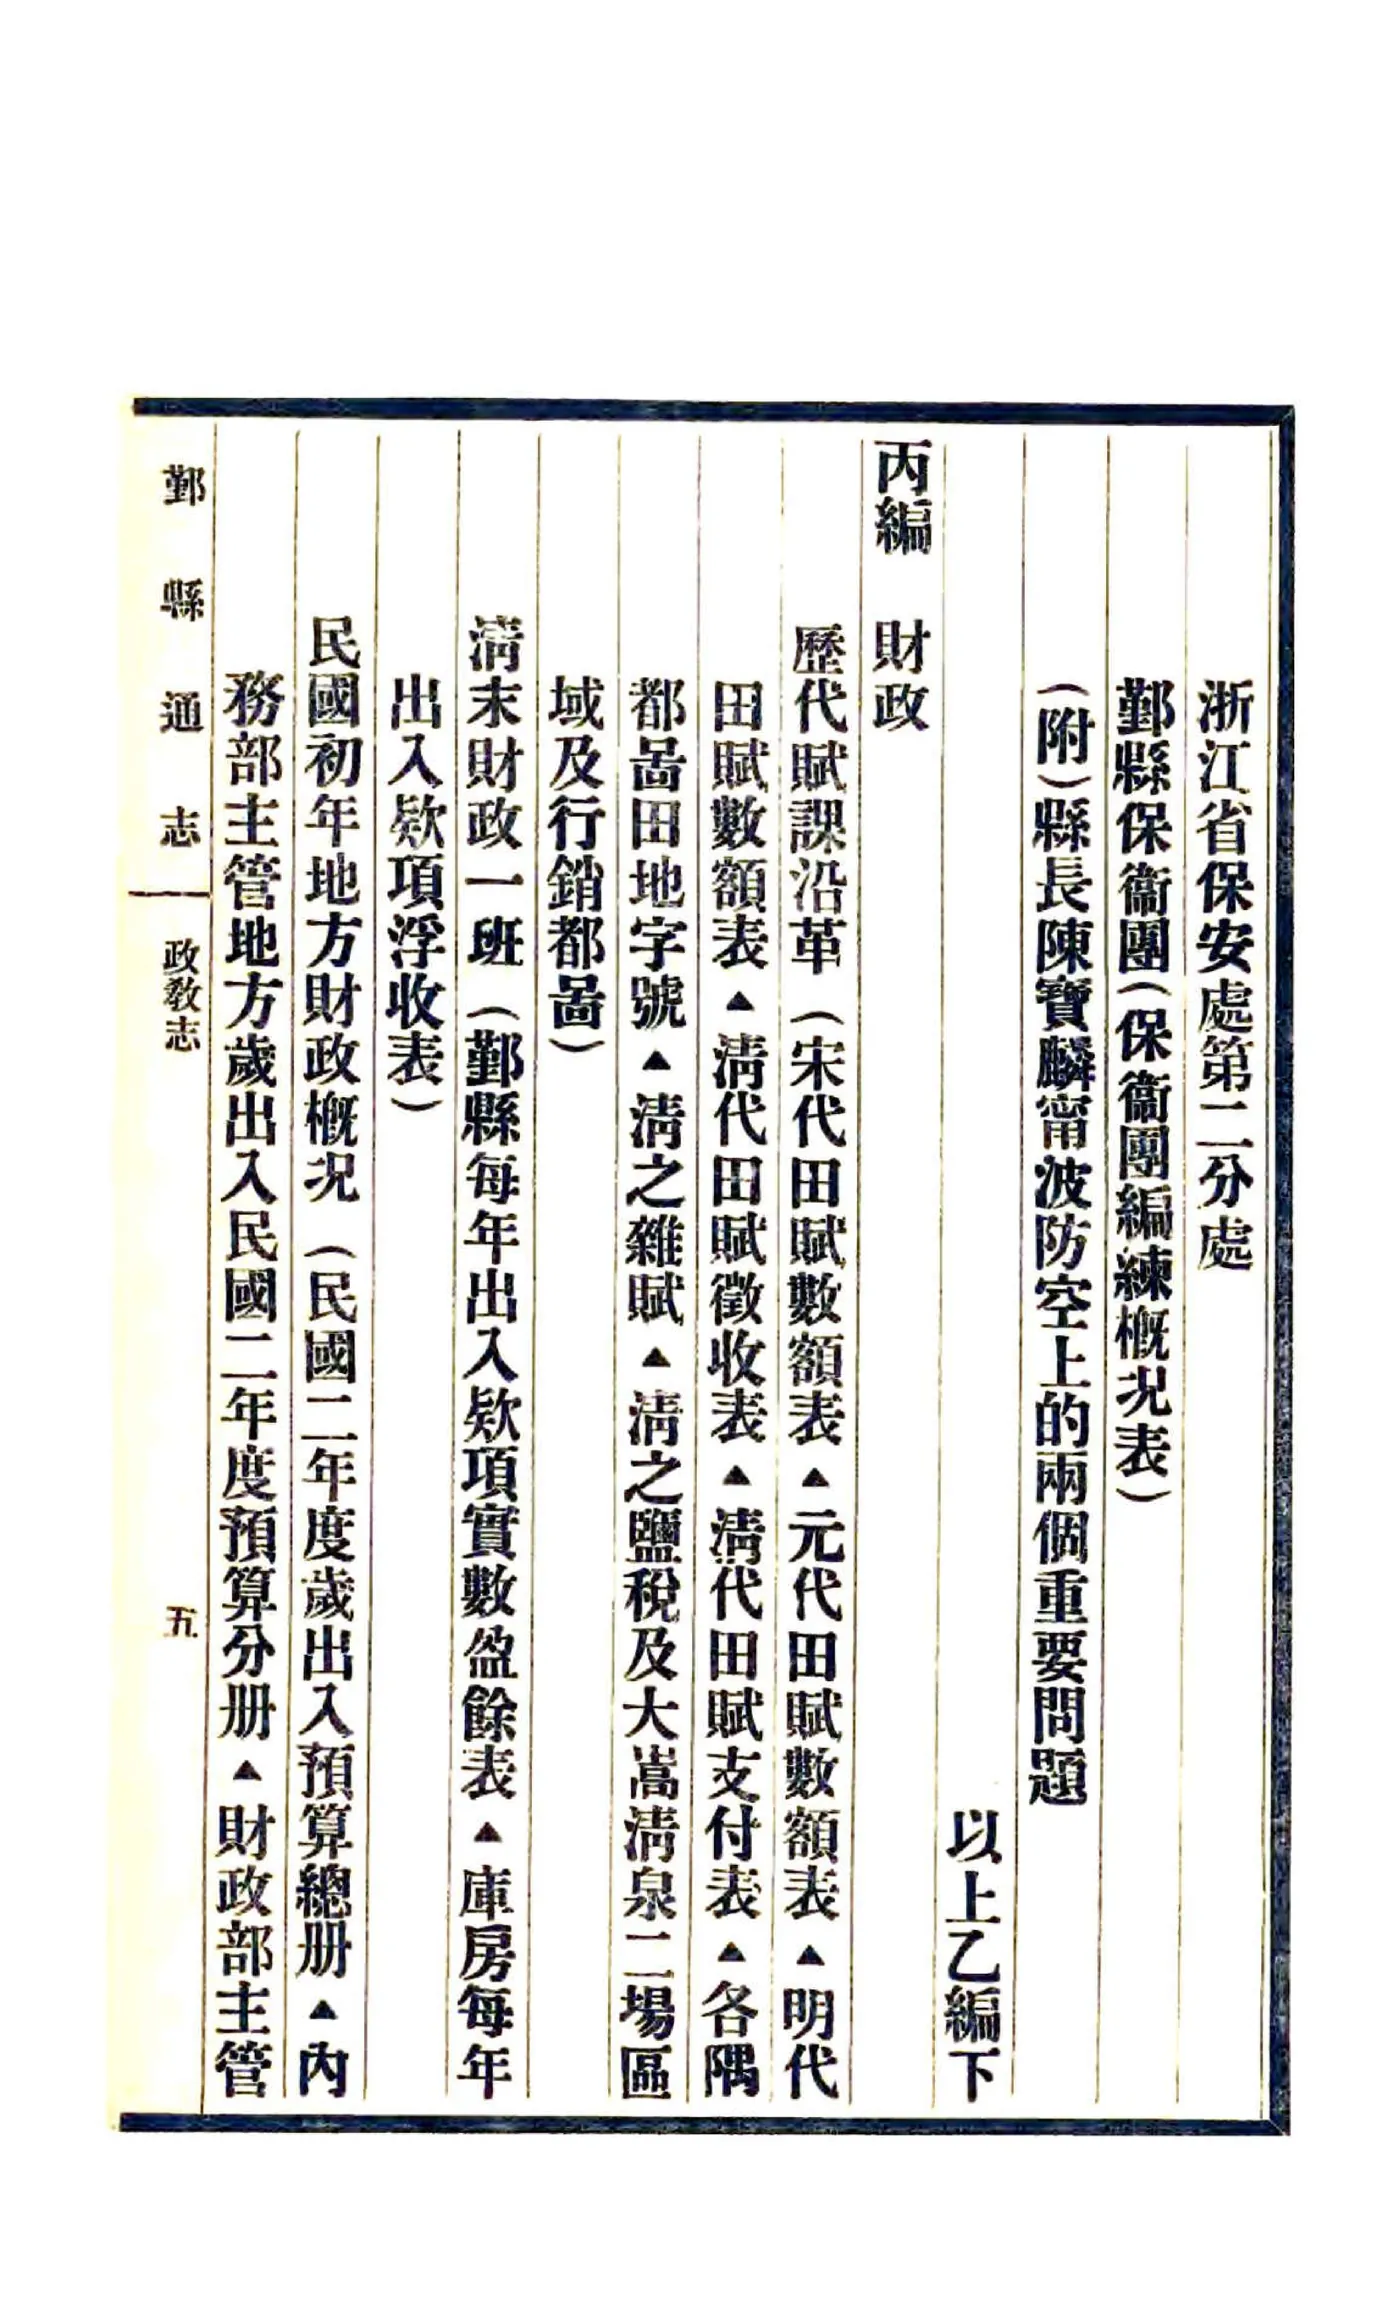 浙江省保安處第二分處
鄞縣保衞團(保衞團編練概况表)
(附)縣長陳寶麟甯波防空上的兩個重要問題
以上乙編下
丙編　財政
歷代賦課沿革(宋代田賦數額表▲元代田賦數額表▲明代
田賦數額表▲淸代田賦徵收表▲淸代田賦支付表▲各隅
都啚田地字號▲淸之雜賦▲淸之鹽稅及大嵩淸泉二場區
域及行銷都啚)
淸末財政一班(鄞縣每年出入欵項實數盈餘表▲庫房每年
出入欵項浮收表)
民國初年地方財政概况(民國二年度歲出入預算總册▲內
務部主管地方歲出入民國二年度預算分册▲財政部主管
鄞縣通志　政敎志　五